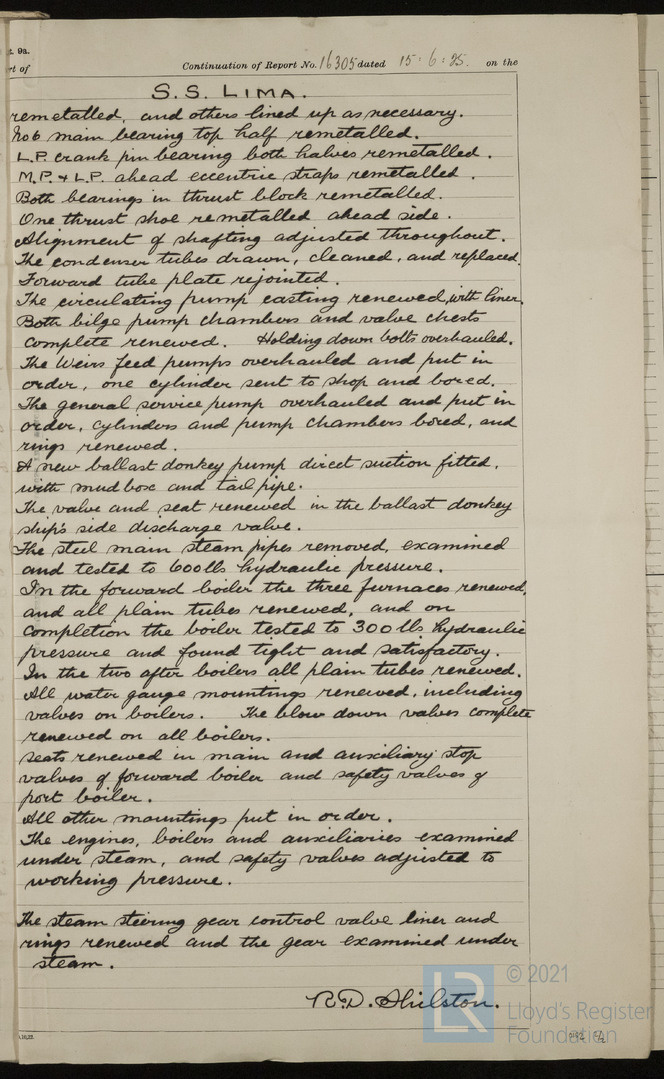 t. 9a.
rt of
Continuation of Report No. 16305 dated 15 : 6 : 25. on the
S.S. LIMA.
remetalled, and others lined up as necessary.
No 6 main bearing top half remetalled.
L.P. crank pin bearing both halves remetalled.
M.P. & L.P. ahead eccentric straps remetalled.
Both bearings in thrust block remetalled.
One thrust shoe remetalled ahead side.
Alignment of shafting adjusted throughout.
The condenser tubes drawn, cleaned, and replaced.
Forward tube plate rejointed.
The circulating pump casting renewed, with liner.
Both bilge pump chambers and valve chests
complete renewed. Holding down bolts overhauled.
The Weirs feed pumps overhauled and put in
order, one cylinder sent to shop and bored.
The general service pump overhauled and put in
order, cylinders and pump chambers bored, and
rings renewed.
A new ballast donkey pump direct suction fitted,
with mud box and tail pipe.
The valve and seat renewed in the ballast donkey
ship's side discharge valve.
The steel main steam pipes removed, examined
and tested to 600 lbs hydraulic pressure.
In the forward boiler the three furnaces renewed,
and all plain tubes renewed, and on
completion the boiler tested to 300 lbs hydraulic
pressure and found tight and satisfactory.
In the two after boilers all plain tubes renewed.
All water gauge mountings renewed, including
valves on boilers. The blow down valves complete
renewed on all boilers.
Seats renewed in main and auxiliary stop
valves of forward boiler and safety valves of
port boiler.
All other mountings put in order.
The engines, boilers and auxiliaries examined
under steam, and safety valves adjusted to
working pressure.
The steam steering gear control valve liner and
rings renewed and the gear examined under
steam.
R.D. Shilston.
LR
© 2021
Lloyd's Register
Foundation